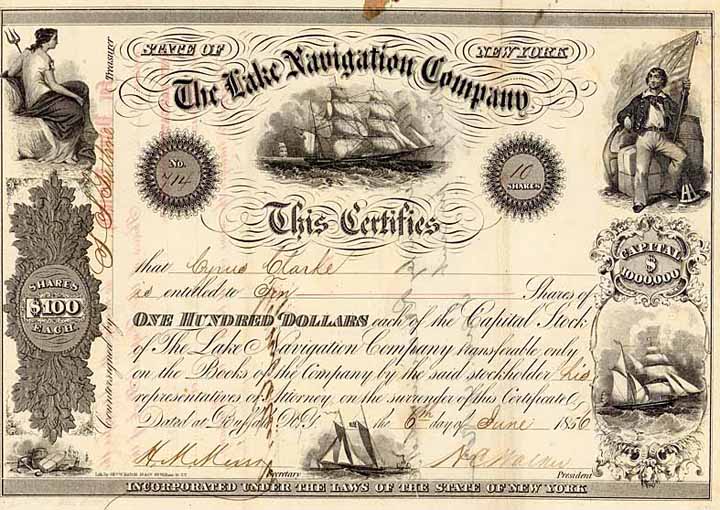 STATE OF NEW YORK
The Lake Navigation Company
No. 714
10 SHARES
This Certifies
that Cyrus Clarke
is entitled to Ten Shares of
ONE HUNDRED DOLLARS each of the Capital Stock
of The Lake Navigation Company transferable only
on the Books of the Company by the said stockholder his
representatives or Attorney, on the surrender of this Certificate
Dated at Buffalo N.Y. the 6th day of June 1856
Secretary
President
INCORPORATED UNDER THE LAWS OF THE STATE OF NEW YORK
SHARES
$100
EACH
Countersigned by
Treasurer
CAPITAL
$
1000000